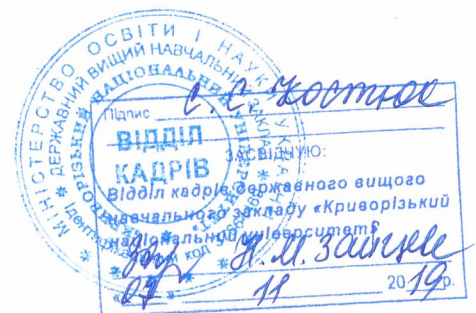 МІНІСТЕРСТВО ОСВІТИ І НАУКИ УКРАЇНИ
ДЕРЖАВНИЙ ВИЩИЙ НАВЧАЛЬНИЙ ЗАКЛАД
КРИВОРІЗЬКИЙ НАЦІОНАЛЬНИЙ УНІВЕРСИТЕТ
ВІДДІЛ
КАДРІВ
код
Підпис С. С. Костюк
ЗАСВІДЧУЮ:
Відділ кадрів державного вищого
навчального закладу «Криворізький
національний університет»
Н.М. Зайцев
« 07 » 11 2019р.